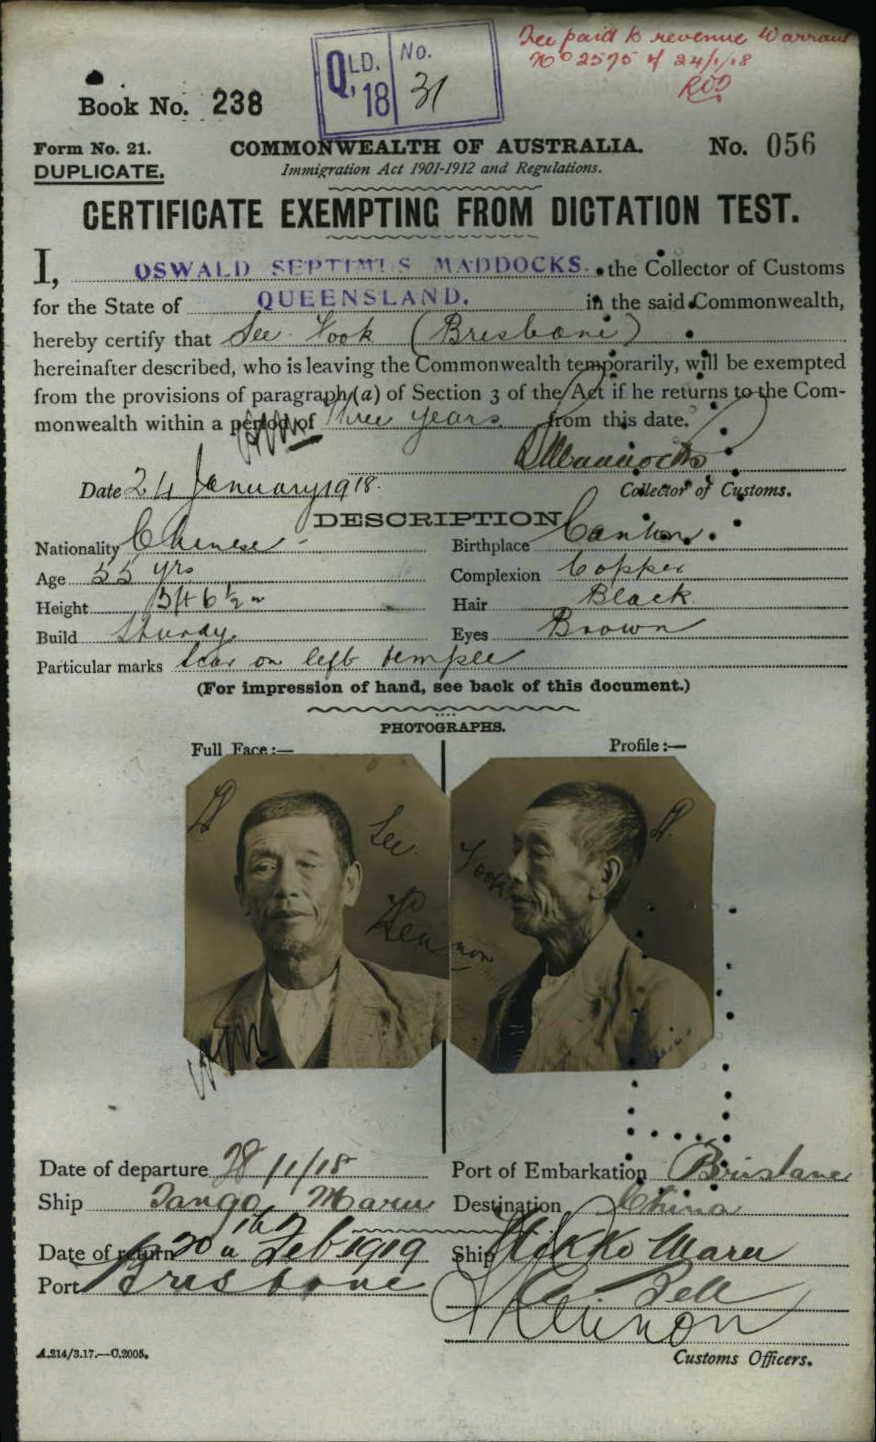 Fee paid to revenue Warrant
No 2575 of 24/1/18
QLD. No.
'18 31
Book No. 238
Form No. 21. COMMONWEALTH OF AUSTRALIA. No. 056
DUPLICATE. Immigration Act 1901-1912 and Regulations.
CERTIFICATE EXEMPTING FROM DICTATION TEST.
I, OSWALD SEPTIMUS MADDOCKS. the Collector of Customs
for the State of QUEENSLAND. in the said Commonwealth,
hereby certify that See Fook (Brisbane)
hereinafter described, who is leaving the Commonwealth temporarily, will be exempted
from the provisions of paragraph (a) of Section 3 of the Act if he returns to the Com-
monwealth within a period of Three years from this date.
Date 24 January 1918. Collector of Customs.
DESCRIPTION
Nationality Chinese Birthplace Canton
Age 55 yrs Complexion Copper
Height 5ft 6½in Hair Black
Build Sturdy Eyes Brown
Particular marks Scar on left temple
(For impression of hand, see back of this document.)
PHOTOGRAPHS.
Full Face:— Profile:—
See Fook
Date of departure 28/1/18 Port of Embarkation Brisbane
Ship Tango Maru Destination China
Date of return 20th Feb 1919 Ship Nikko Maru
Port Brisbane
Customs Officers.
A.214/3.17.—C.2005.